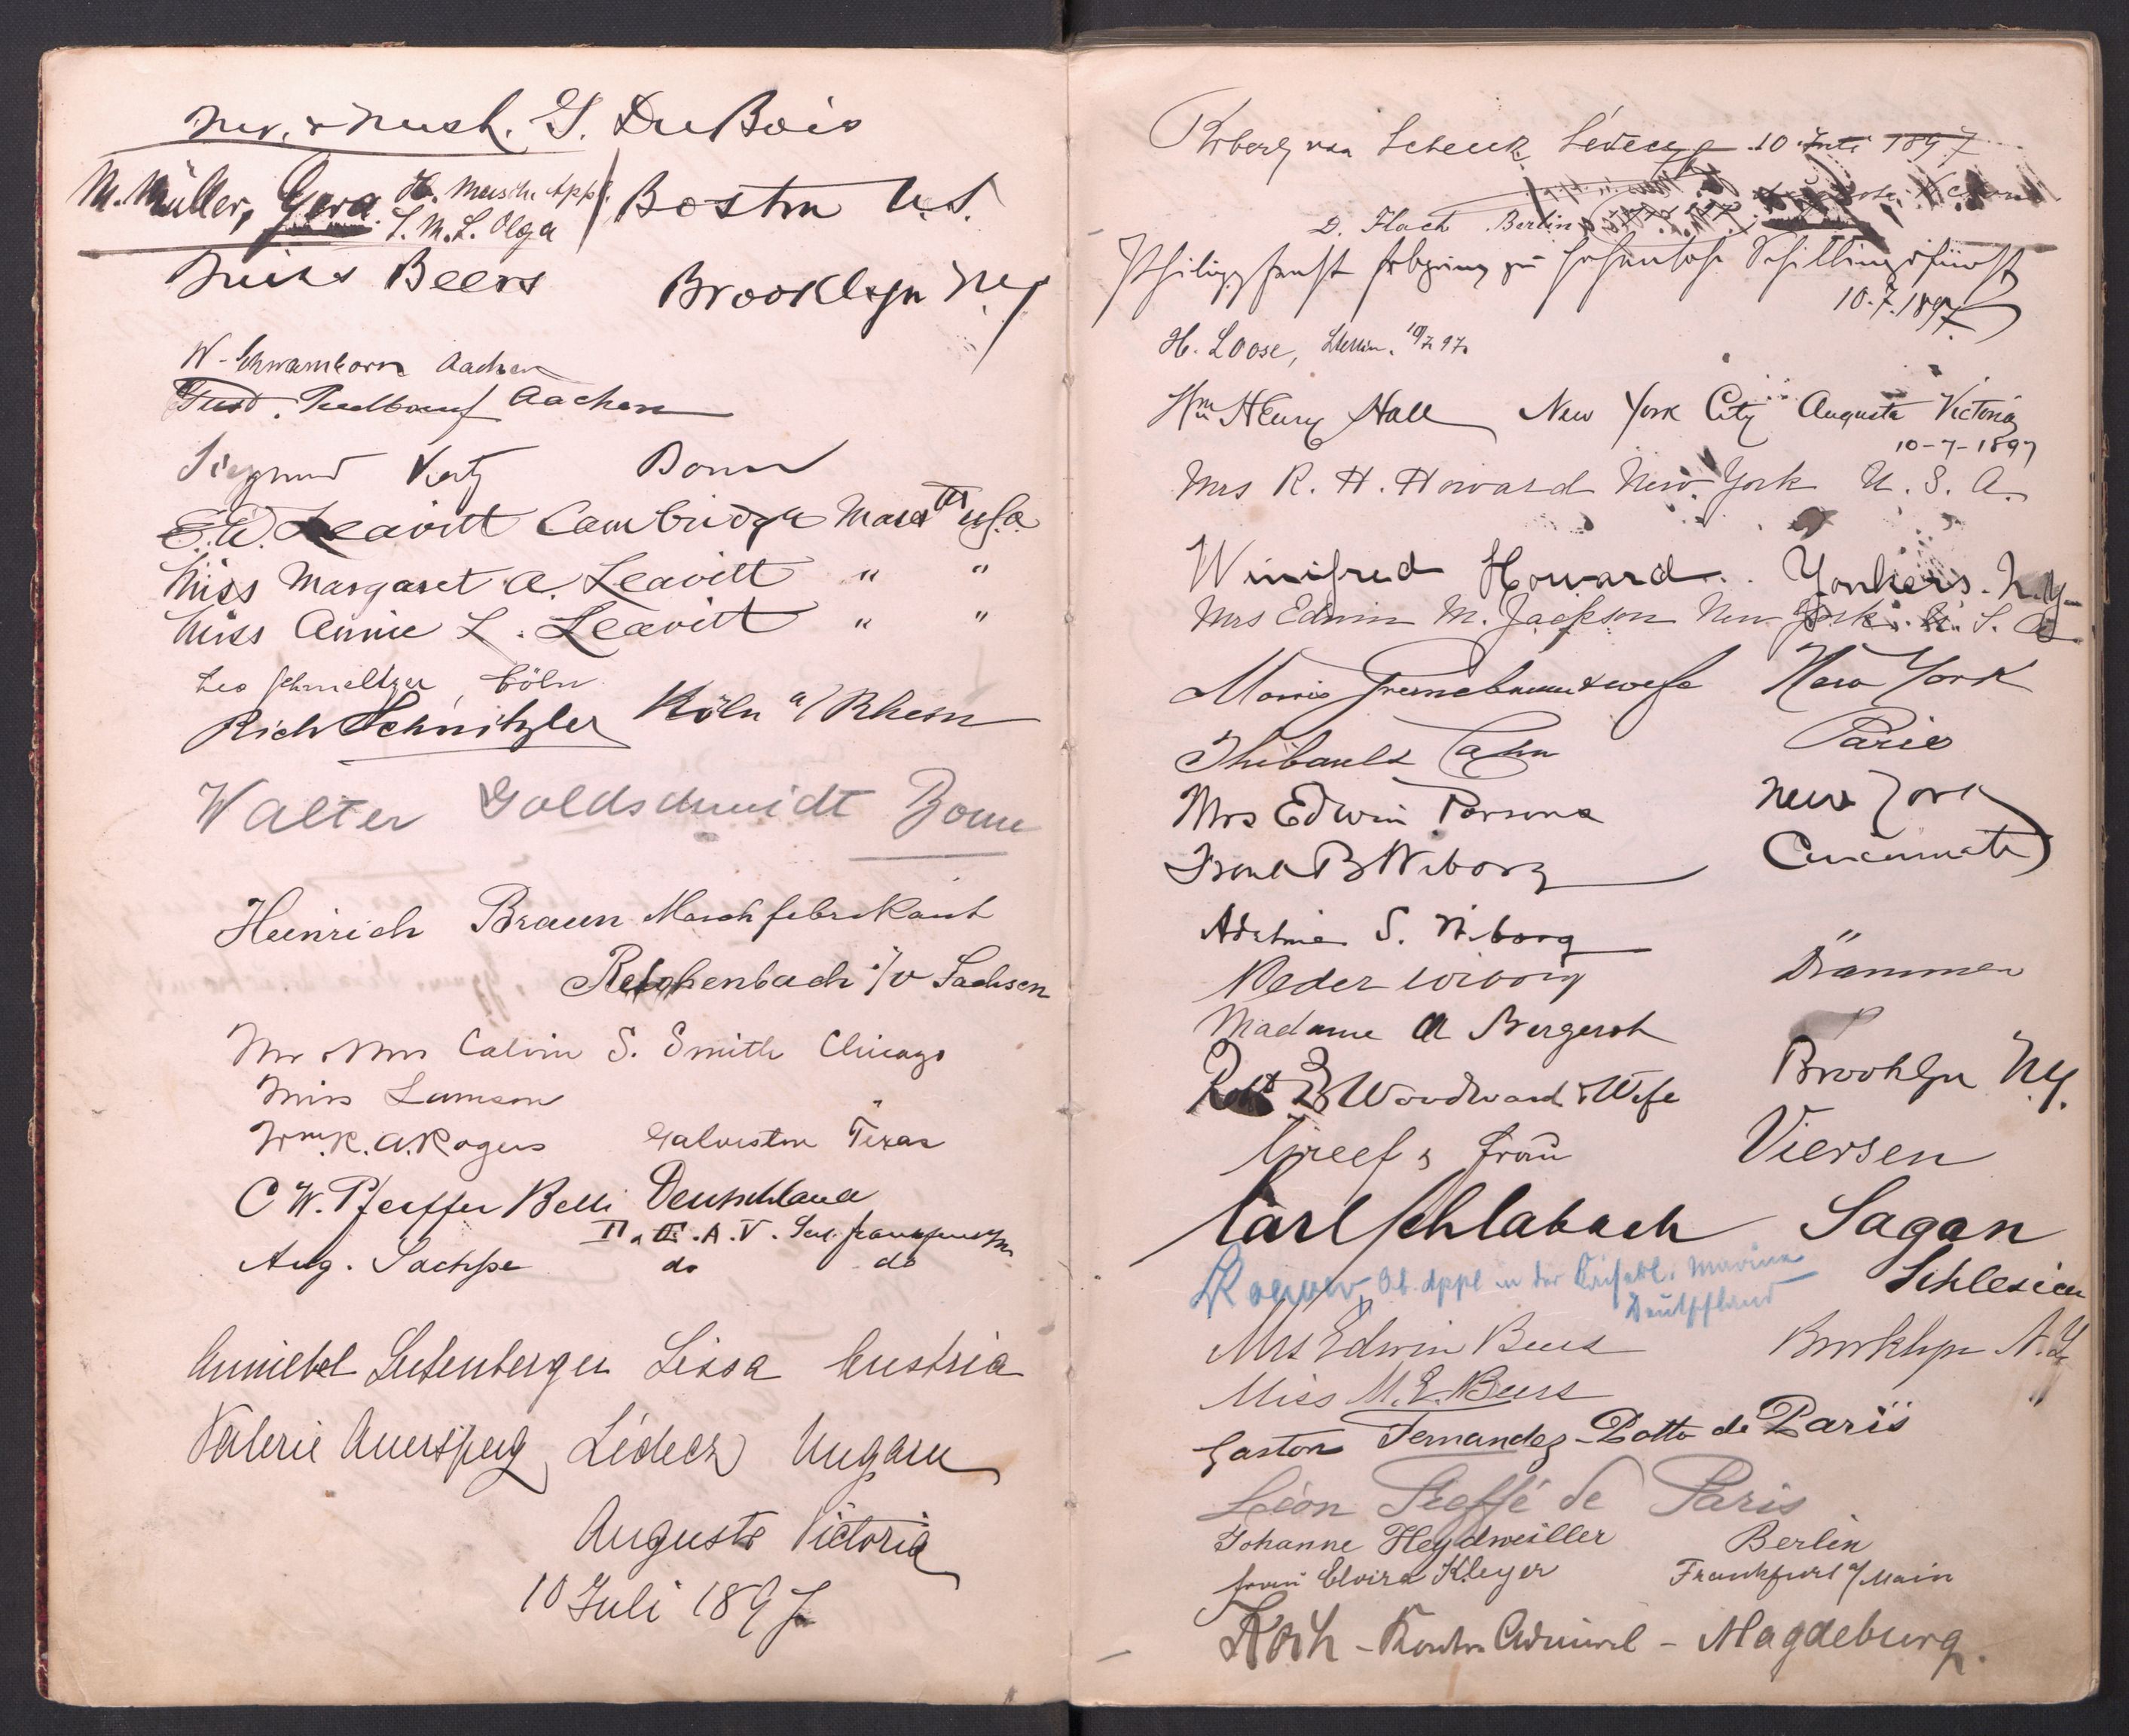 Mr. & Mrs. G. DuBois
M. Müller, Gera. H. App.
S. M. S. Olga
Boston U.S.
Miss Beers Brooklyn N.Y.
W. Schwamborn Aachen
Aachen
Siegmund Katz Bonn
E. W. Leavitt Cambridge Mass USA
Miss Margaret A. Leavitt " "
Miss Annie L. Leavitt " "
Leo Schmeltzer, Cöln
Rich Schnitzler Köln a/Rhein
Walter Goldschmidt Bonn
Heinrich Braun
Reichenbach i/V Sachsen
Mr & Mrs Calvin S. Smith Chicago
Miss Lamson "
Wm. K. A. Rogers Galveston Texas
C W. Pfeiffer Belli Deutschland
II. u. III. A. V.
Aug. Sachse do do
Lissa Austria
Valerie Auersperg Lédecz Ungarn
Augusta Victoria
10 Juli 1897
von Schenk 10 Juli 1897
D. Flach Berlin
Philipp Ernst Erbprinz zu Hohenlohe Schillingsfürst
10.7.1897.
H. Loose, 10/7 97.
Wm Henry Hall New York City Augusta Victoria
10-7-1897
Mrs R. H. Howard New York U. S. A.
Winifred Howard. Yonkers. N.Y.
Mrs Edwin M. Jackson New York. U. S. A
Morris & wife New York
Thibault Cahn Paris
Mrs Edwin Parsons New York
Frank B Wiborg Cincinnati
Adeline S. Wiborg
Peder Wiborg Drammen
Madame A Bergeroh
Robt B Woodward & Wife Brooklyn N.Y.
Greef & Frau Viersen
Carl Schlabach Sagan
Schlesien
Ob. Appl in der Kaiserl. Marine
Deutschland
Mrs Edwin Beers Brooklyn N.Y.
Miss M. E. Beers "
Gaston Fernandez-Patto de Paris
Léon de Paris
Johanne Heydweiller Berlin
Frau Elvira Kleyer Frankfurt a/Main
Koch - Kontre Admiral - Magdeburg.